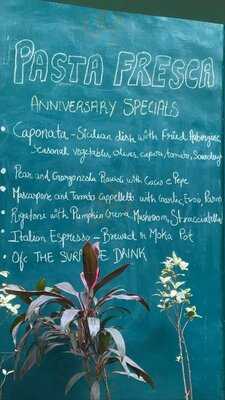 PASTA FRESCA
ANNIVERSARY SPECIALS
Caponata - Sicilian dish with Fried Aubergine,
Seasonal vegetables, olives, capers, tomato, Sourdough
Pear and Gorgonzola Ravioli with Cacio e Pepe
Mascarpone and Tomato Cappelletti with Garlic, Evoo, Parm
Rigatoni with Pumpkin Crema, Mushroom, Stracciatella
Italian Espresso - Brewed in Moka Pot
Chocolate
THE SURPRISE DRINK